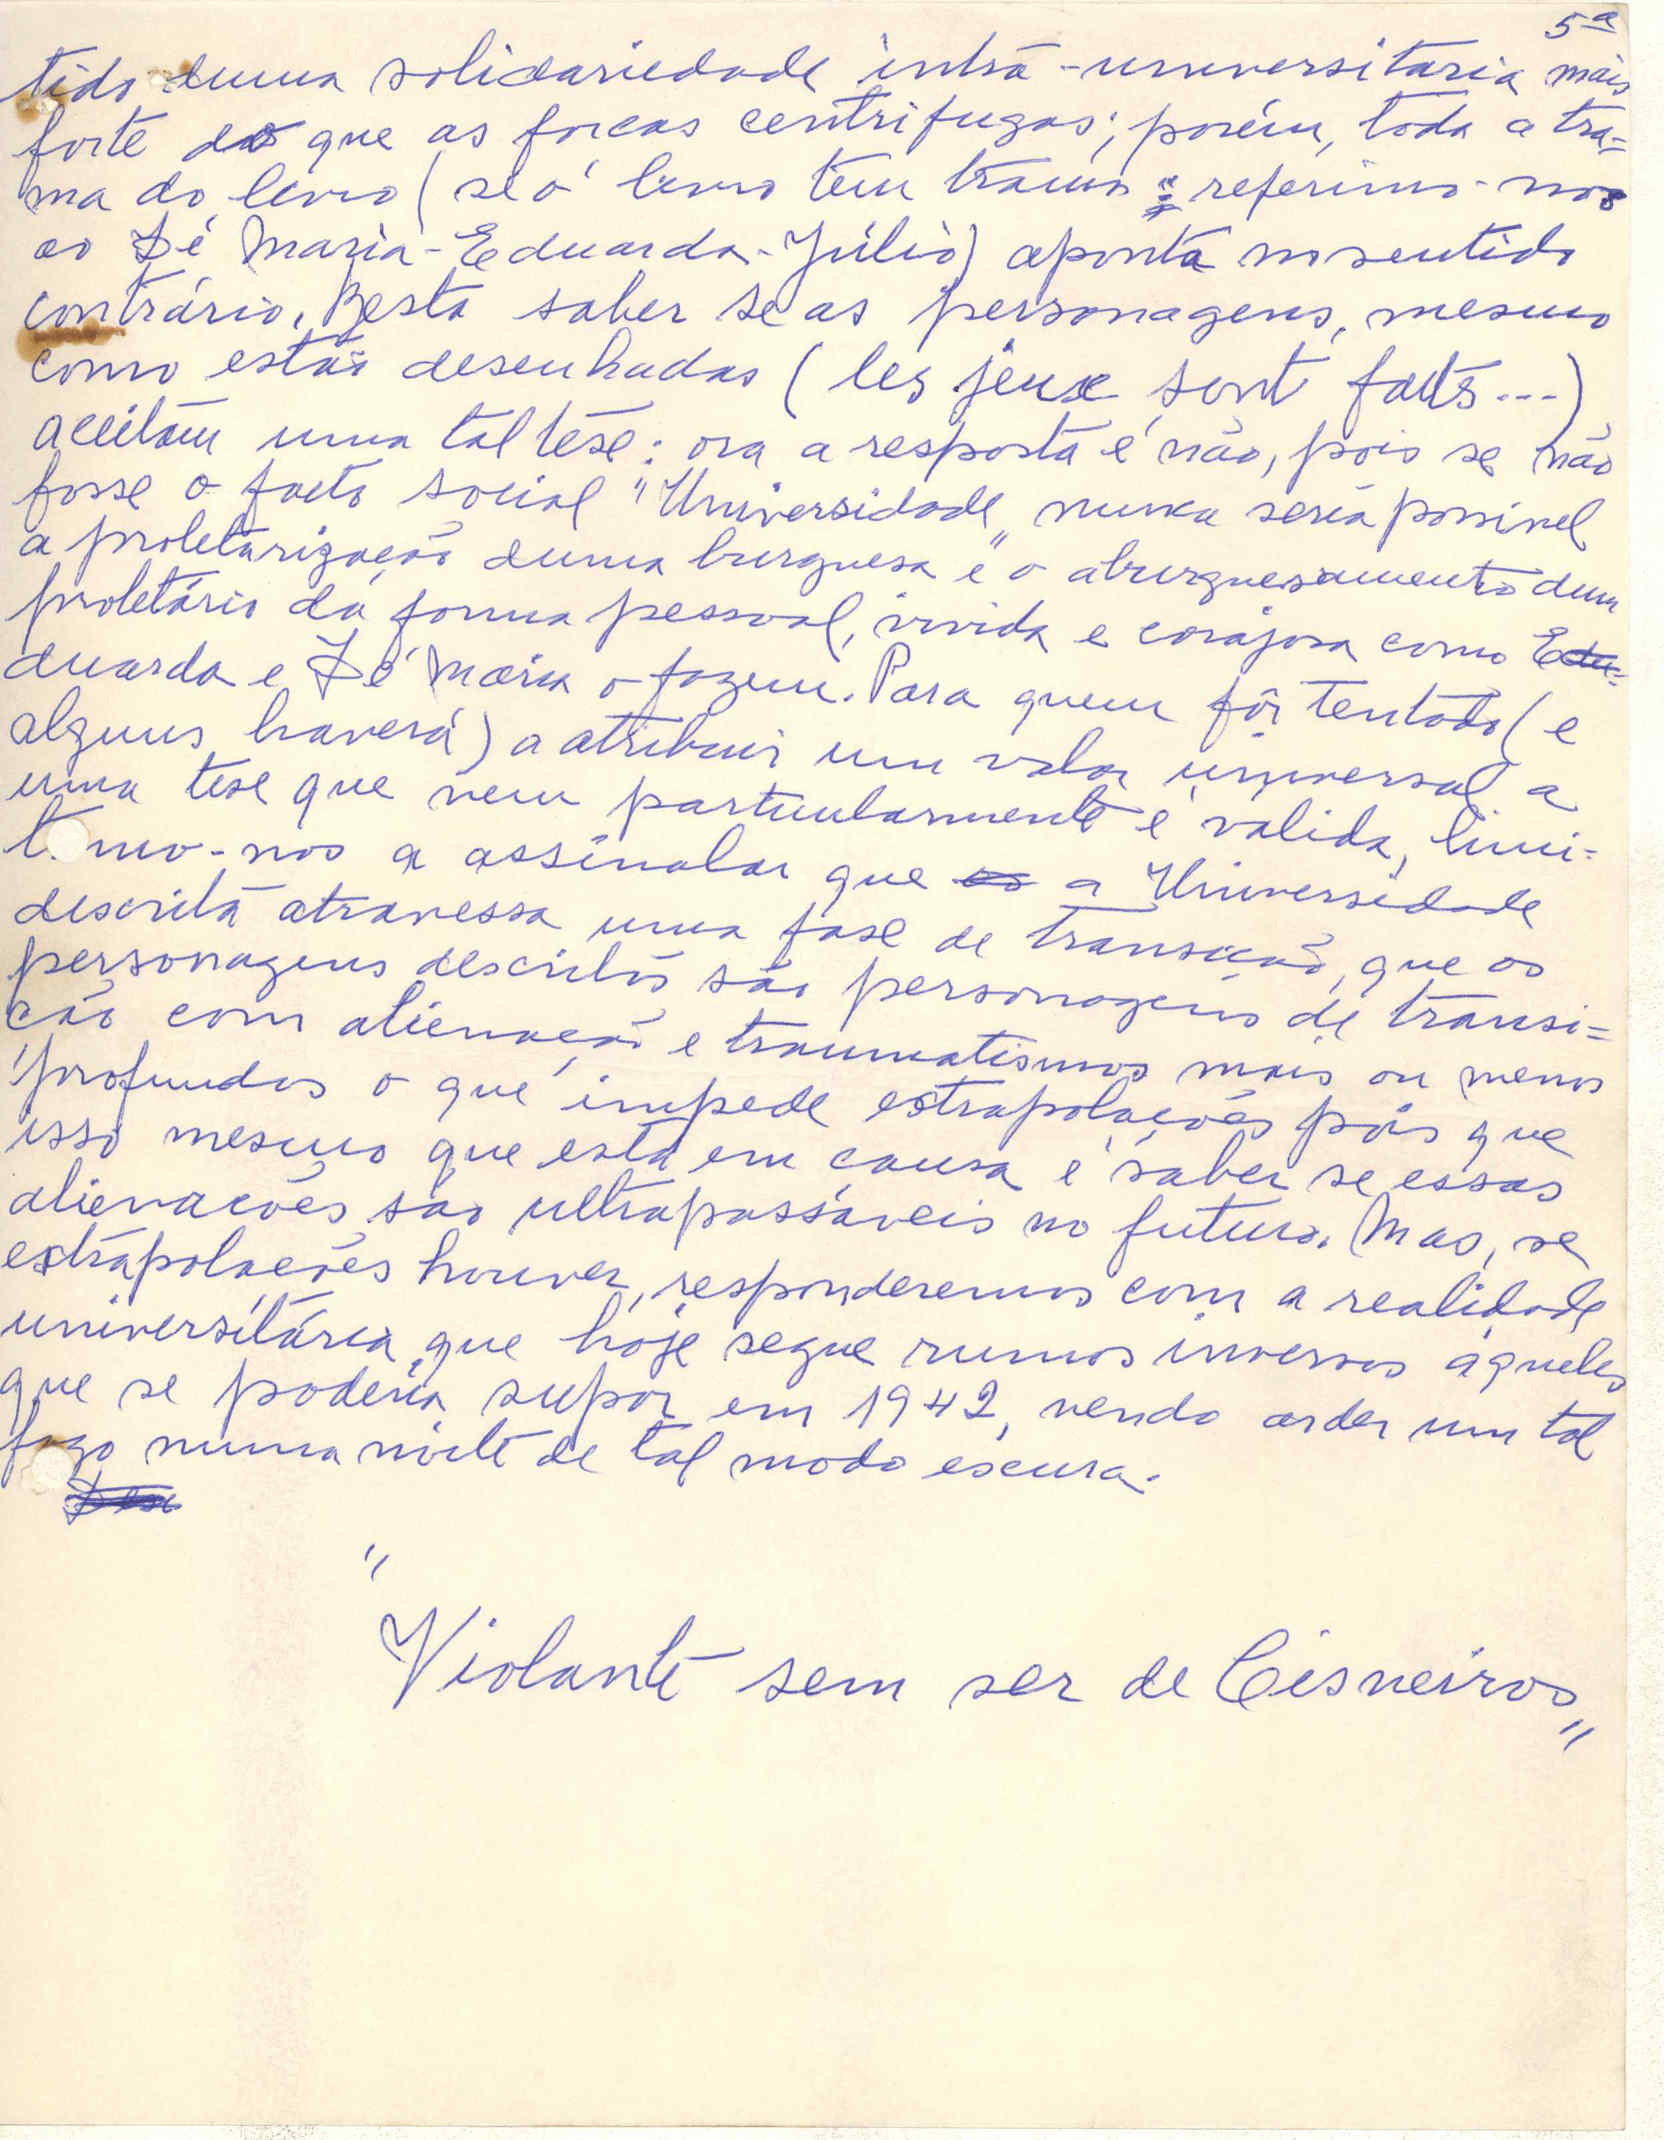 5ª
tido duma solidariedade intra-universitária mais
forte do que as forças centrifugas; porém, toda a tra=
ma do livro (se o livro tem trama: referimo-nos
ao Zé Maria-Eduarda-Júlio) aponta no sentido
contrário. Resta saber se as personagens, mesmo
como estão desenhadas (les jeux sont faits...)
aceitam uma tal tese: ora a resposta é não, pois se não
fosse o facto social "Universidade" nunca seria possivel
a proletarização duma burguesa e o aburguesamento dum
proletário da forma pessoal, vivida e corajosa como E
duarda e Zé Maria o fazem. Para quem fôr tentado (e
alguns haverá) a atribuir um valor universal a
uma tese que nem particularmente é válida, limi=
t mo-nos a assinalar que a Universidade
descrita atravessa uma fase de transição, que os
personagens descritos são personagens de transi=
ção com alienação e traumatismos mais ou menos
profundos o que impede extrapolações pois que
isso mesmo que está em causa é saber se essas
alienações são ultrapassáveis no futuro. Mas, se
extrapolações houver, responderemos com a realidade
universitária que hoje segue rumos inversos àqueles
que se poderia supor em 1942, vendo arder um tal
fogo numa noite de tal modo escura.
"Violante sem ser de Cisneiros"